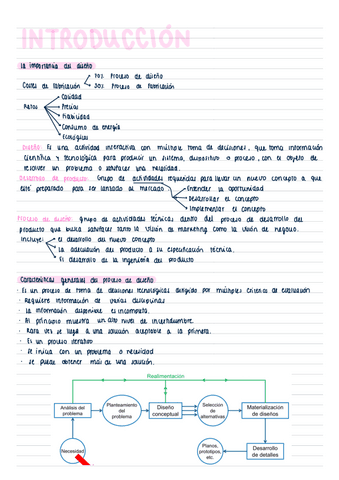 INTRODUCCIÓN
La importancia del diseño
70% Proceso de diseño
Costes de fabricación
30% Proceso de fabricación
Calidad
Precio
Ratos
Fiabilidad
Consumo de energía
Ecológico
Diseño: Es una actividad interactiva con múltiple toma de decisiones, que toma información
científica y tecnológica para producir un sistema, dispositivo o proceso, con el objeto de
resolver un problema o satisfacer una necesidad.
Desarrollo de producto: Grupo de actividades requeridas para llevar un nuevo concepto a que
esté preparado para ser lanzado al mercado
Entender la oportunidad
Desarrollar el concepto
Implementar el concepto
Proceso de diseño: grupo de actividades técnicas dentro del proceso de desarrollo del
producto que busca satisfacer tanto la visión de marketing como la visión de negocio.
Incluye:
El desarrollo del nuevo concepto
La adecuación del producto a su especificación técnica.
El desarrollo de la ingeniería del producto
Características generales del proceso de diseño
· Es un proceso de toma de decisiones tecnológicas dirigido por múltiples criterios de evaluación
· Requiere información de varias disciplinas
· La información disponible es incompleta.
· Al principio muestra un alto nivel de incertidumbre.
· Rara vez se llega a una solución aceptable a la primera.
· Es un proceso iterativo
· Se inicia con un problema o necesidad
· Se puede obtener más de una solución.
Realimentación
Análisis del
problema
Planteamiento
del
problema
Diseño
conceptual
Seleccion
de
alternativas
Materialización
de diseños
Necesidad
Planos,
prototipos,
etc
Desarrollo
de detalles